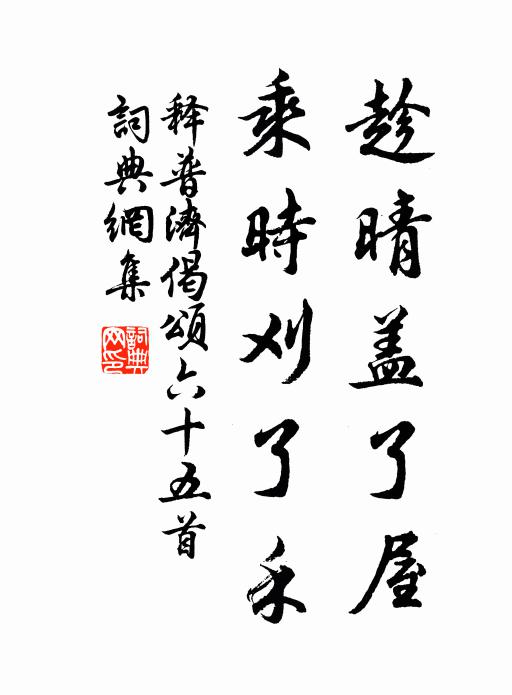 趁晴盖了屋
乘時刈了禾
释普濟偈頌六十五首
詞典網集
詞典网印